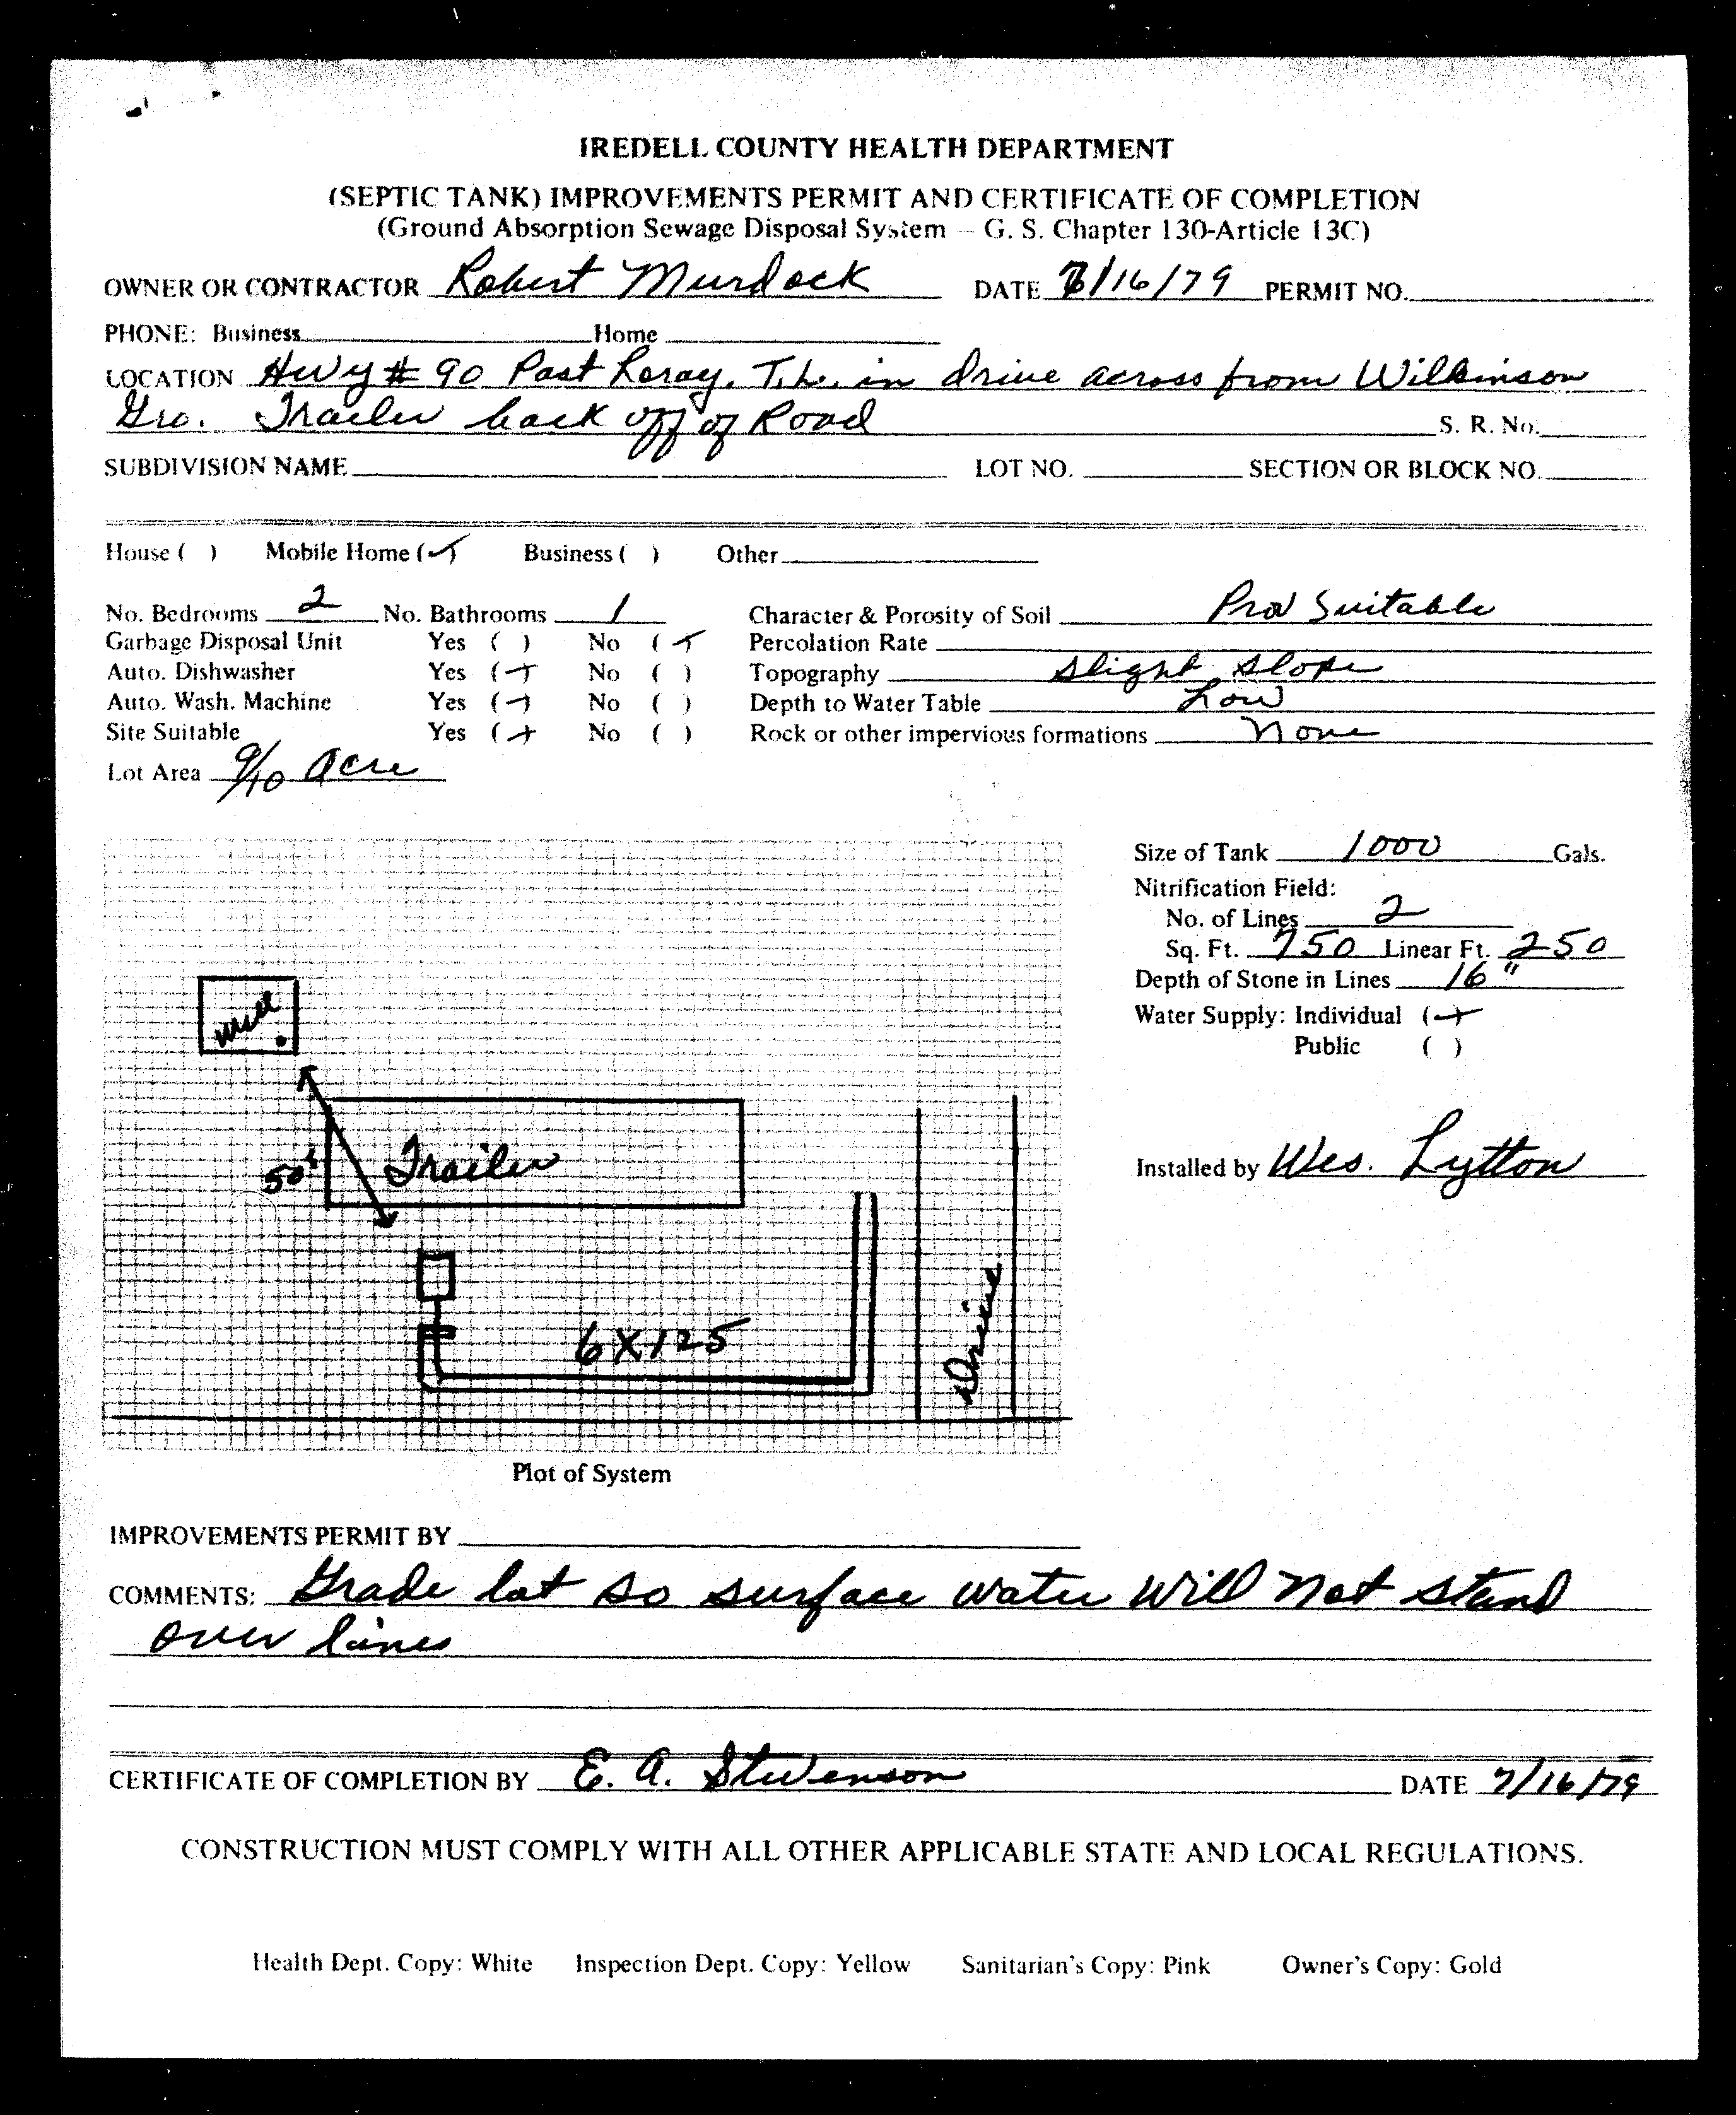 IREDELL COUNTY HEALTH DEPARTMENT
(SEPTIC TANK) IMPROVEMENTS PERMIT AND CERTIFICATE OF COMPLETION
(Ground Absorption Sewage Disposal System – G. S. Chapter 130-Article 13C)
OWNER OR CONTRACTOR Robert Murdock DATE 7/16/79 PERMIT NO.
PHONE: Business Home
LOCATION Hwy # 90 Past Loray. T.L. in drive across from Wilkinson
Gro. Trailer back off of Road S. R. No.
SUBDIVISION NAME LOT NO. SECTION OR BLOCK NO.
House ( ) Mobile Home (✓) Business ( ) Other
No. Bedrooms 2 No. Bathrooms 1 Character & Porosity of Soil Prov Suitable
Garbage Disposal Unit Yes ( ) No (✓) Percolation Rate
Auto. Dishwasher Yes (✓) No ( ) Topography slight slope
Auto. Wash. Machine Yes (✓) No ( ) Depth to Water Table Low
Site Suitable Yes (✓) No ( ) Rock or other impervious formations None
Lot Area 9/10 acre
Size of Tank 1000 Gals.
Nitrification Field:
No. of Lines 2
Sq. Ft. 750 Linear Ft. 250
Depth of Stone in Lines 16"
Water Supply: Individual (✓)
Public ( )
Installed by Wes. Lytton
well
50'
Trailer
6X125
Drive
Plot of System
IMPROVEMENTS PERMIT BY
COMMENTS: Grade lot so surface water will not stand
over lines
CERTIFICATE OF COMPLETION BY E. A. Stevenson DATE 7/16/79
CONSTRUCTION MUST COMPLY WITH ALL OTHER APPLICABLE STATE AND LOCAL REGULATIONS.
Health Dept. Copy: White Inspection Dept. Copy: Yellow Sanitarian's Copy: Pink Owner's Copy: Gold